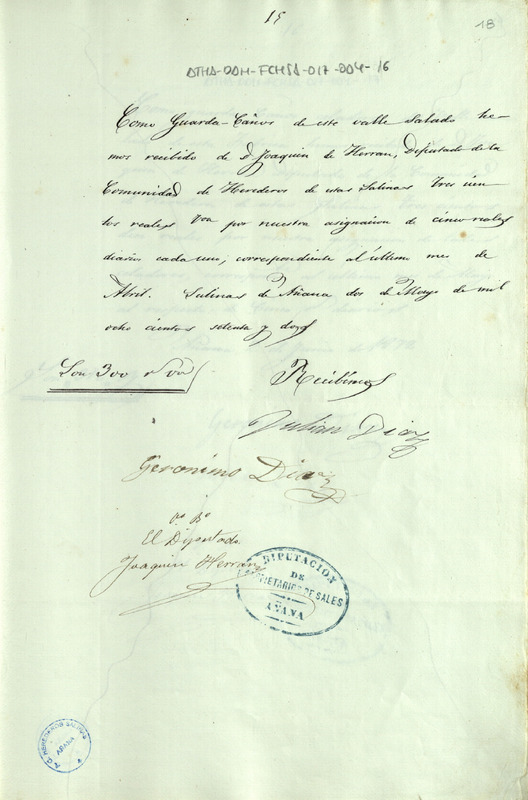 15
18
ATHA-DAH-FCHSA-017-004-16
Como Guarda-Caños de este valle Salado he-
mos recibido de D. Joaquin de Herran, Deputado de la
Comunidad de Herederos de estas Salinas Tres cien-
tos reales Von por nuestra asignacion de cinco reales
diarios cada uno, correspondiente al último mes de
Abril. Salinas de Añana dos de Mayo de mil
ocho cientos setenta y dos
Son 300 r Von
Recibimos
Julian Diaz
Geronimo Diaz
Vº Bº
El Diputado
Joaquin Herran
DIPUTACION
DE
PROPIETARIOS DE SALES
AÑANA
HEREDEROS SALINAS
AÑANA